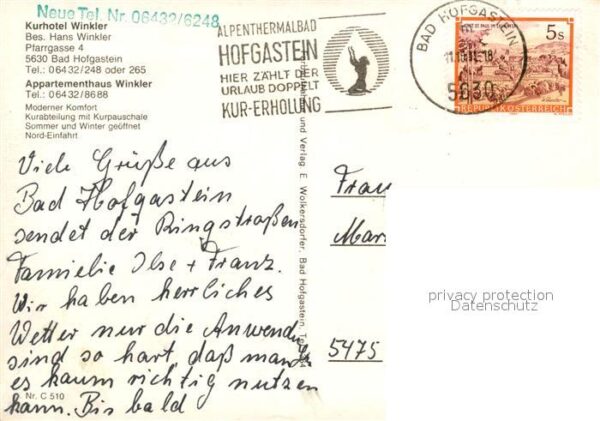 Neue Tel. Nr. 06432/6248
Kurhotel Winkler
Bes. Hans Winkler
Pfarrgasse 4
5630 Bad Hofgastein
Tel.: 06432/248 oder 265
Appartementhaus Winkler
Tel.: 06432/8688
Moderner Komfort
Kurabteilung mit Kurpauschale
Sommer und Winter geöffnet
Nord-Einfahrt
ALPENTHERMALBAD
HOFGASTEIN
HIER ZÄHLT DER
URLAUB DOPPELT
KUR-ERHOLUNG
BAD HOFGASTEIN
5630
5s
REPUBLIK ÖSTERREICH
Viele Grüße aus
Bad Hofgastein
sendet der Ringstraßen
Familie Ilse + Franz.
Wir haben herrliches
Wetter nur die
sind so hart, daß man
es kaum richtig nutzen
kann. Bis bald
Nr. C 510
und Verlag E. Wolkersdorfer, Bad Hofgastein,
5475
privacy protection
Datenschutz